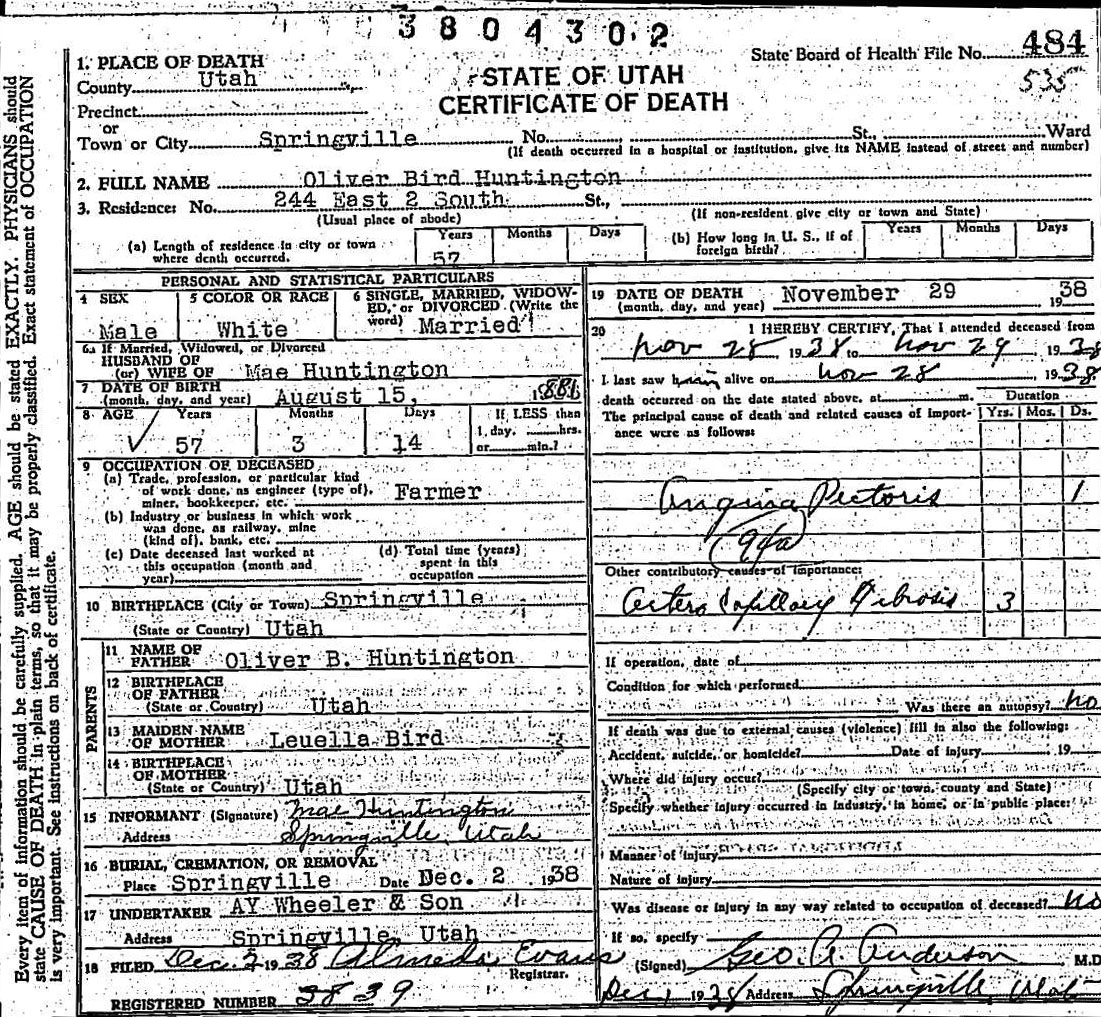 3804302
State Board of Health File No. 484
535
STATE OF UTAH
CERTIFICATE OF DEATH
1. PLACE OF DEATH
County Utah
Precinct
or
Town or City Springville No. St., Ward
(If death occurred in a hospital or institution, give its NAME instead of street and number)
2. FULL NAME Oliver Bird Huntington
3. Residence: No. 244 East 2 South St.,
(Usual place of abode)
(If non-resident give city or town and State)
(a) Length of residence in city or town where death occurred.
Years Months Days
57
(b) How long in U. S., if of foreign birth?
Years Months Days
PERSONAL AND STATISTICAL PARTICULARS
4 SEX
Male
5 COLOR OR RACE
White
6 SINGLE, MARRIED, WIDOW-
ED, or DIVORCED (Write the
word) Married
6a If Married, Widowed, or Divorced
HUSBAND OF
(or) WIFE OF Mae Huntington
7 DATE OF BIRTH
(month, day, and year) August 15, 1881
8 AGE Years Months Days If LESS than
57 3 14 1 day, hrs.
or min.?
9 OCCUPATION OF DECEASED
(a) Trade, profession, or particular kind
of work done, as engineer (type of), Farmer
miner, bookkeeper, etc.
(b) Industry or business in which work
was done, as railway, mine
(kind of), bank, etc.
(c) Date deceased last worked at
this occupation (month and
year)
(d) Total time (years)
spent in this
occupation
10 BIRTHPLACE (City or Town) Springville
(State or Country) Utah
PARENTS
11 NAME OF
FATHER Oliver B. Huntington
12 BIRTHPLACE
OF FATHER
(State or Country) Utah
13 MAIDEN NAME
OF MOTHER Leuella Bird
14 BIRTHPLACE
OF MOTHER
(State or Country) Utah
15 INFORMANT (Signature) Mae Huntington
Address Springville, Utah
16 BURIAL, CREMATION, OR REMOVAL
Place Springville Date Dec. 2 1938
17 UNDERTAKER AY Wheeler & Son
Address Springville, Utah
18 FILED Dec. 2 1938 Almeda Evans
Registrar.
REGISTERED NUMBER 3839
19 DATE OF DEATH November 29 1938
(month, day, and year)
20 I HEREBY CERTIFY, That I attended deceased from
Nov 28, 1938 to Nov 29 1938
I last saw him alive on Nov 28 1938
death occurred on the date stated above, at m.
Duration
The principal cause of death and related causes of import-
ance were as follows:
Yrs. Mos. Ds.
Angina Pectoris 1
(94a)
Other contributory causes of importance:
Arterio Capillary Fibrosis 3
If operation, date of
Condition for which performed
Was there an autopsy? No
If death was due to external causes (violence) fill in also the following:
Accident, suicide, or homicide? Date of injury 19
Where did injury occur?
(Specify city or town, county and State)
Specify whether injury occurred in industry, in home, or in public place:
Manner of injury
Nature of injury
Was disease or injury in any way related to occupation of deceased? No
If so, specify
(Signed) Geo. A. Anderson M.D.
Dec 1 1938 Address Springville, Utah
Every item of information should be carefully supplied. AGE should be stated EXACTLY. PHYSICIANS should
state CAUSE OF DEATH in plain terms, so that it may be properly classified. Exact statement of OCCUPATION
is very important. See instructions on back of certificate.